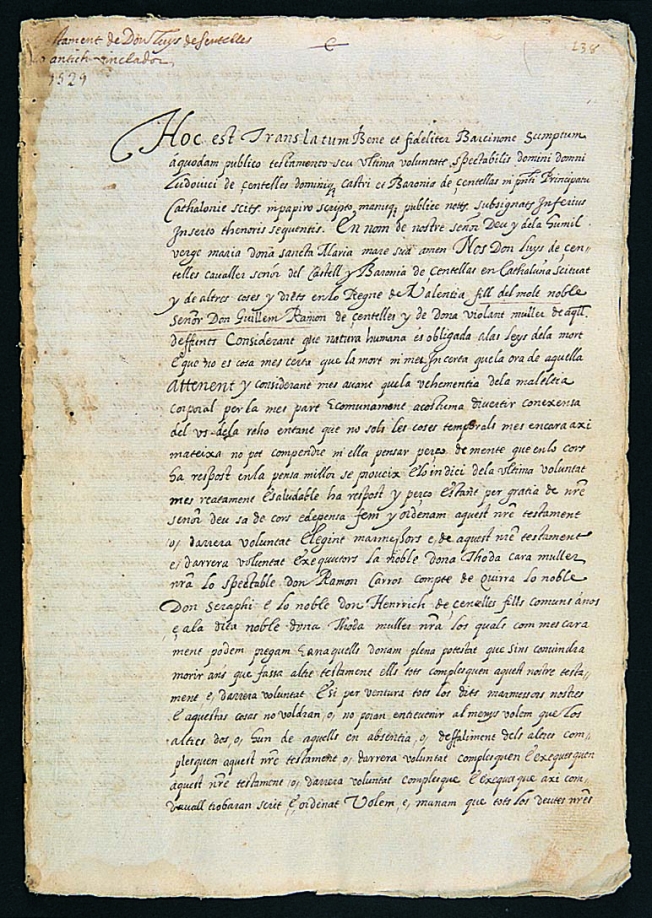 tament de Don Luys de Sentelles
antich vinclador
1521
C
138
Hoc est Translatum Bene et fideliter Barcinone Sumptum
á quodam publico testamento seu vltima voluntate spectabilis domini domni
Ludouici de centelles dominiq₃ castri et Baronia de centellas in pnti Principatu
Cathalonie scits. in papiro scripto, manuq₃ publice notts. subsignats Inferius
Inserto thenoris sequentis. En nom de nostre señor Deu y dela humil
verge maria dona sancta Maria mare sua amen Nos Don Luys de cen-
telles cavaller señor del Castell y Baronia de Centellas en Cathaluña scituat
y de altres coses y drets en lo Regne de Valencia fill del molt noble
señor Don Guillem Ramon de çentelles y de dona violant muller de aqll.
deffunts Considerant que natura humana es obligada a las leys dela mort
E que no es cosa mes certa que la mort ni mes Incerta que la ora de aquella
Attenent y considerant mes auant que la vehementia dela maleltia
corporal per la mes part E comunament acostuma divertir conexensa
del vs dela raho en tant que no sols les coses temporals mes encara axi
mateixa no pot compendre ni ella pensar perço de mente que en lo cors
ha respost en la pensa millor se proueix E lo indici dela vltima voluntat
mes reatament E saludable ha respost y perço Estant per gratia de nre
señor deu sa de cors e de pensa fem y ordenam aquest nre testament
o, darrera voluntat Elegint marmessors e, de aquest nre testament
e, darrera voluntat exequutors la noble dona Thoda cara muller
nra lo spectable don Ramon Carros compte de Quirra lo noble
Don Seraphi e lo noble don Henrrich de çentelles fills comuns á nos
e, ala dita noble dona Thoda muller nra los quals com mes cara
ment podem pregam E an aquells donam pleno potestat que sins conuindra
morir ans que fassa altre testament ells tots complesquen aquest nostre testa-
ment e, darrera voluntat E si per ventura tots los dits marmessors nostres
E aquestas cosas no voldran, o, no poran entreuenir al menys volem que los
altres dos, o, hun de aquells en absentia, o, deffaliment dels altres com-
plesquen aquest nre testament o, darrera voluntat complesquen E exequesquen
aquest nre testament o, darrera voluntat complesque E exequesque axi com
dauall trobaran scrit E, ordenat Volem, e, manam que tots los deutes nres